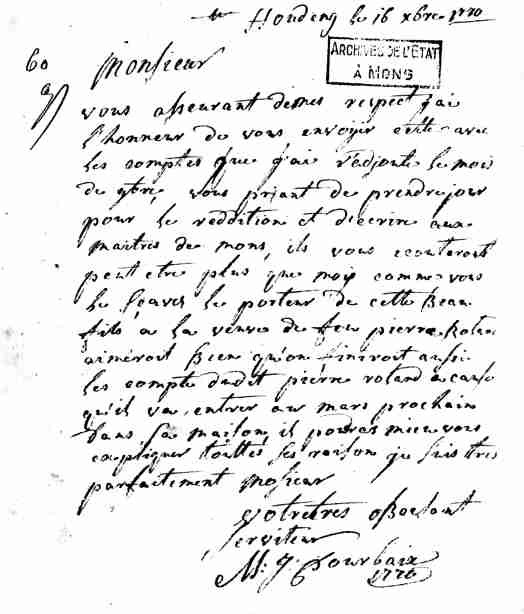 Houdeng le 16 xbre 1770
ARCHIVES DE L'ÉTAT
À MONS
60
Monsieur
vous asseurant de mes respect j'ai
l'honneur de vous envoyer cette avec
les comptes que j'ai redjouté le mois
de 9bre, vous priant de prendre jour
pour le reddition et d'ecrire aux
maitres de mons, ils vous ecouteront
peut etre plus que moy comme vous
le sçavez le porteur de cette Beau
fils a la veuve de feu pierre Rolan
aimeroit Bien qu'on finiroit aussi
les compte dudit pierre roland a cause
qu'il va entrer au mars prochain
dans sa maison, il pourra mieu vous
expliquer touttes ses raison je suis tres
parfaitement Mosieur
votre tres oBeisant
serviteur
M: J: Dourbaix
1770